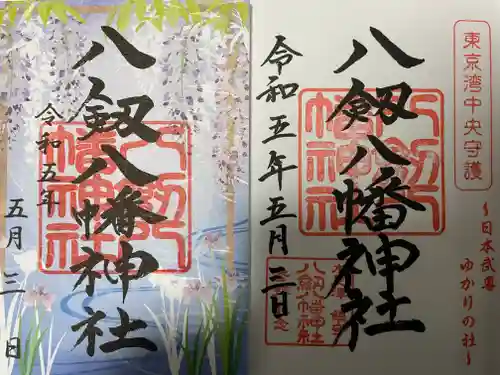 八劔八幡神社
令和五年
五月三日
八劔八幡神社
東京湾中央守護
八劔八幡神社
令和五年五月三日
八劔八幡神社
八劔八幡神社
~日本武尊
ゆかりの社~